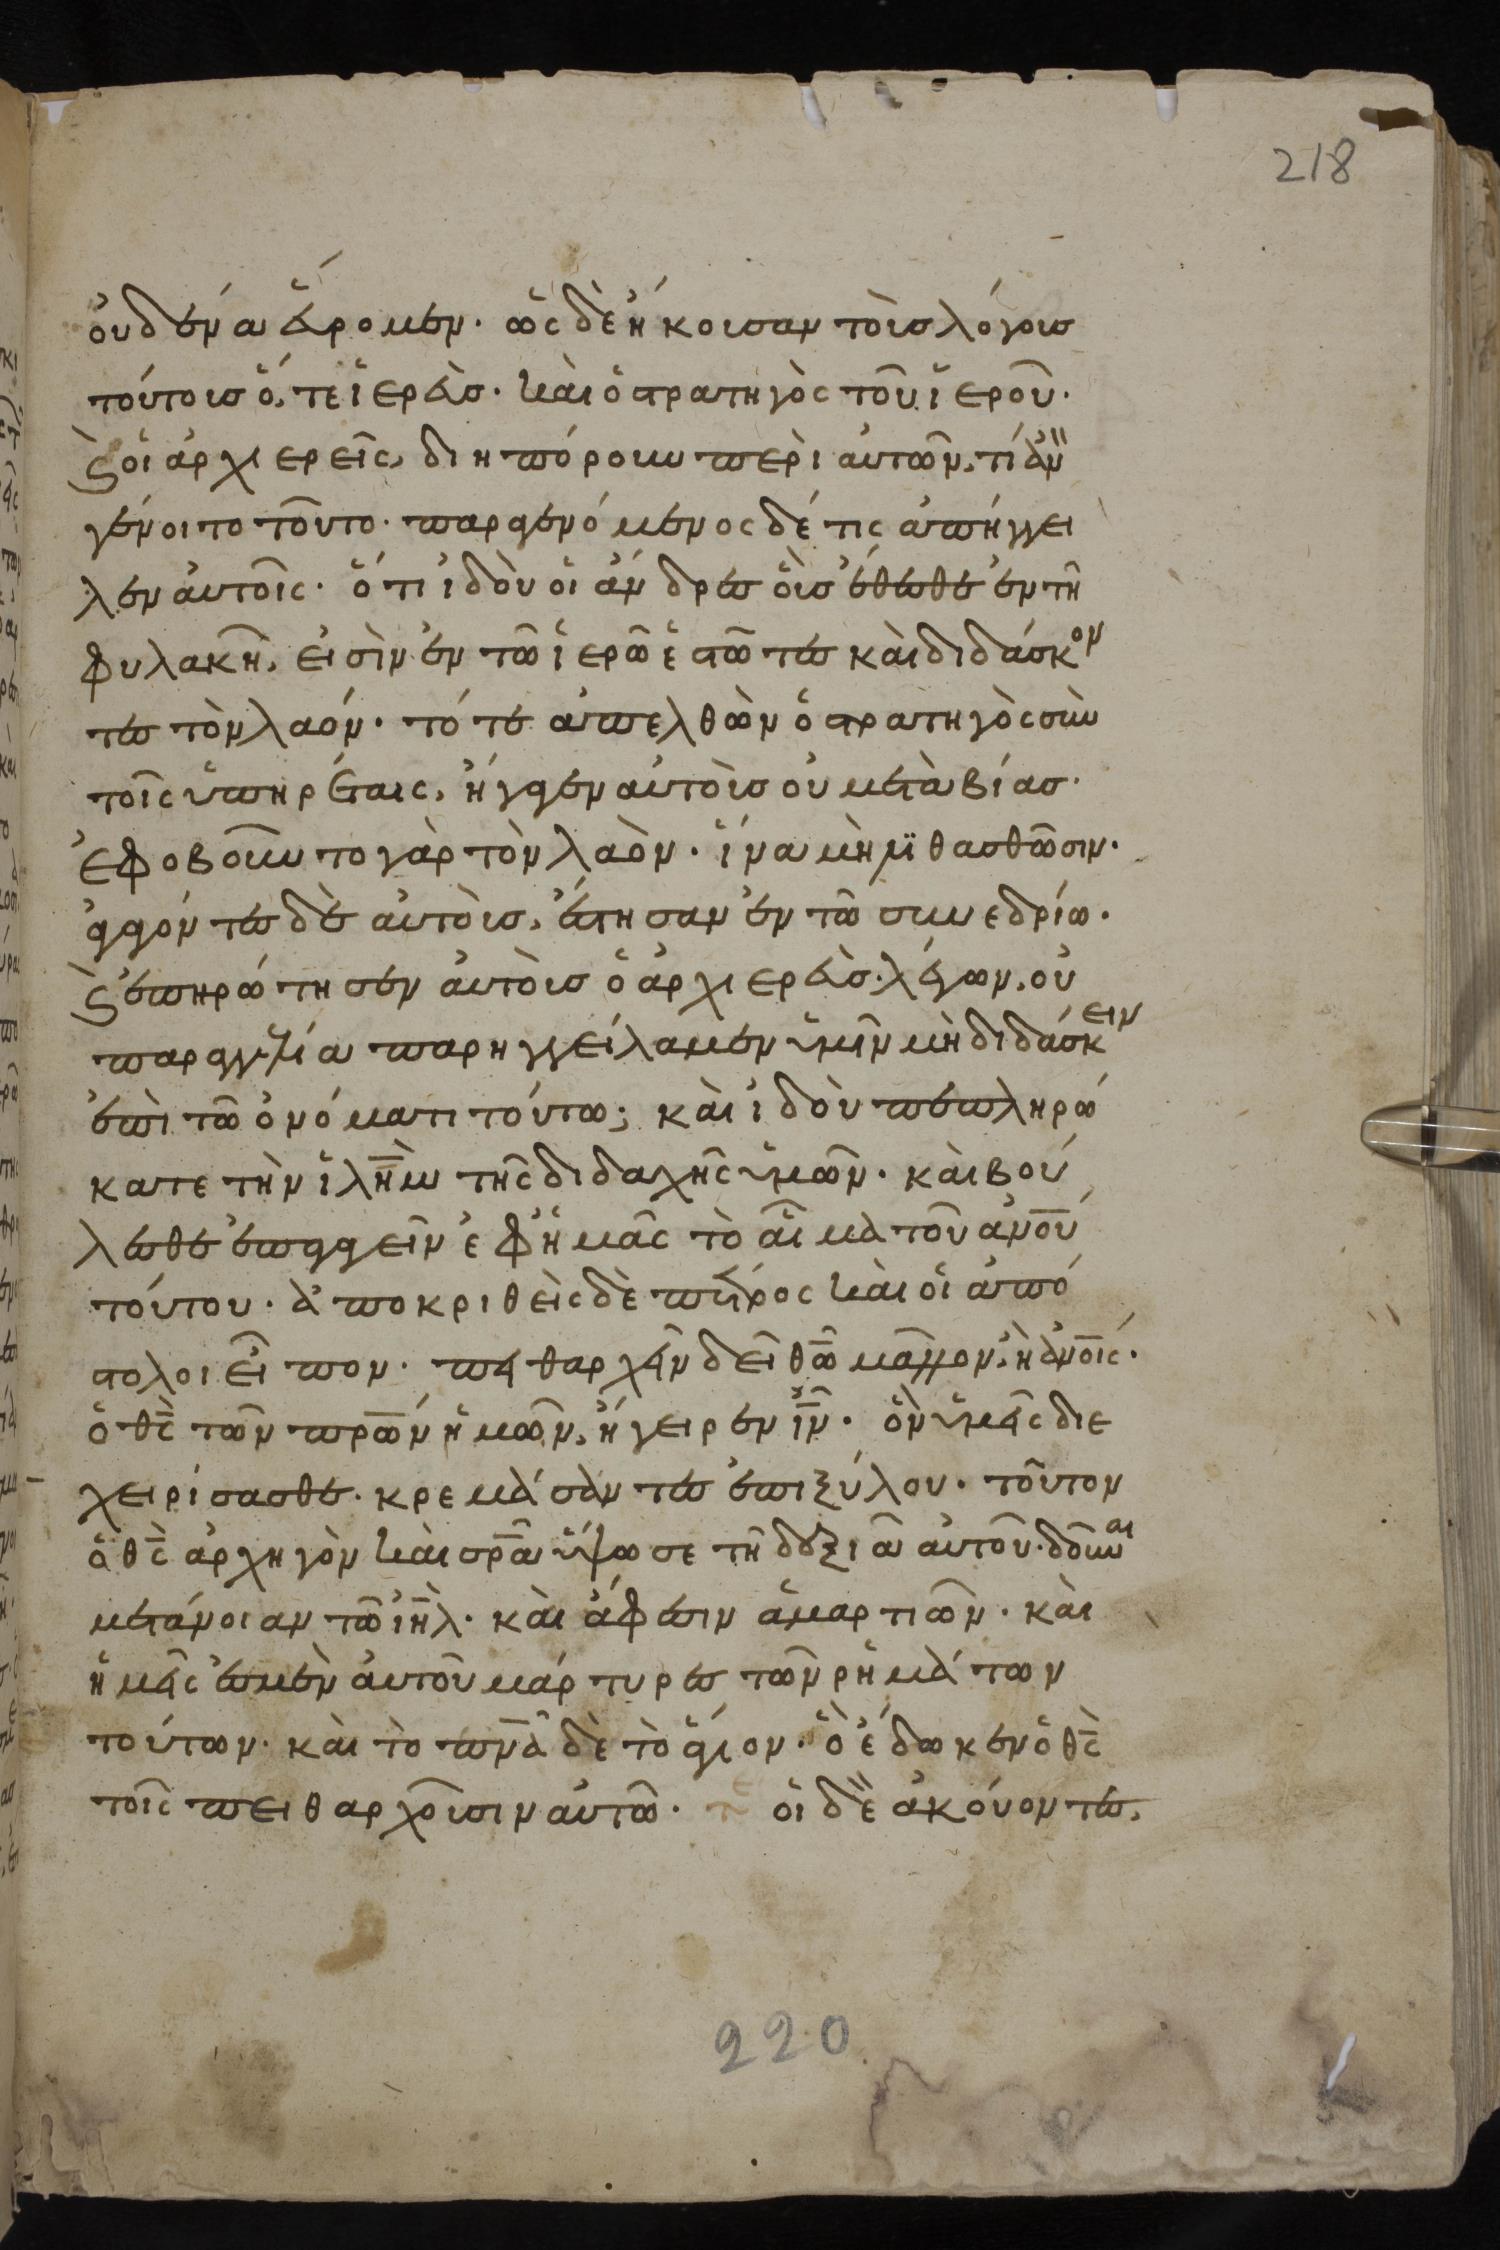 218
ὀυδένα ἕυρομεν· ὡς δὲ ἤκουσαν τοὺς λόγους
τούτους ὅ, τε ἱερεὺς· καὶ ὁ στρατηγὸς τοῦ ἱεροῦ·
καὶ οἱ ἀρχιερεῖς, διηπόρουν περὶ αὐτῶν, τί ἂν
γένοιτο τοῦτο· παραγενόμενος δέ τις ἀπήγγει
λεν αὐτοῖς· ὅτι ἰδοὺ οἱ ἄνδρες οὓς ἔθεσθε ἐν τῆ
φυλακῆ, εἰσὶν ἐν τῶ ἱερῶ ἑστῶτες καὶ διδάσκον
τες τὸν λαόν· τότε ἀπελθὼν ὁ στρατηγὸς σὺν
τοῖς ὑπηρέταις, ἤγαγεν αὐτοὺς οὐ μετὰ βίας·
ἐφοβοῦντο γὰρ τὸν λαὸν· ἵνα μὴ λιθασθῶσιν·
ἀγαγόντες δὲ αὐτοὺς, ἔστησαν ἐν τῶ συνεδρίω·
καὶ ἐπηρώτησεν αὐτοὺς ὁ ἀρχιερεὺς· λέγων, οὐ
παραγγελία παρηγγείλαμεν ὑμῖν μὴ διδάσκειν
ἐπὶ τῶ ὀνόματι τούτω; καὶ ἰδοὺ πεπληρώ
κατε τὴν ἱλὴμ τῆς διδαχῆς ὑμῶν· καὶ βού
λεσθε ἐπαγαγεῖν ἐφ ἡμᾶς τὸ αἷμα τοῦ ἀνου
τούτου· ἀποκριθεὶς δὲ πέτρος καὶ οἱ ἀπό
στολοι εἶπον· πειθαρχεῖν δεῖ θῶ μᾶλλον, ἢ ἀνοις·
ὁ θς τῶν πρων ἡμῶν, ἤγειρεν ἰν· ὃν ὑμεῖς διε
χειρίσασθε· κρεμάσαντες ἐπι ξύλου· τοῦτον
ὁ θς ἀρχηγὸν καὶ σρα ὕψωσε τῆ δεξιᾶ αὐτοῦ· δοῦναι
μετάνοιαν τῶ ἰηλ· καὶ ἄφεσιν ἁμαρτιῶν· καὶ
ἡμεῖς ἐσμὲν αὐτοῦ μάρτυρες τῶν ρημάτων
τούτων· καὶ τὸ πνα δὲ τὸ ἅγιον· ὃ ἔδωκεν ὁ θς
τοῖς πειθαρχοῦσιν αὐτῶ· οἱ δὲ ἀκούοντες,
220